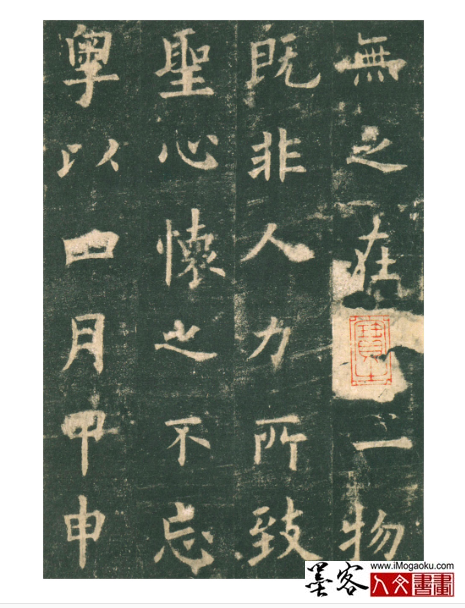 無之在一物
既非人力所致
聖心懷之不忘
粵以四月甲申
www.iMogaoku.com
墨客人文書畫